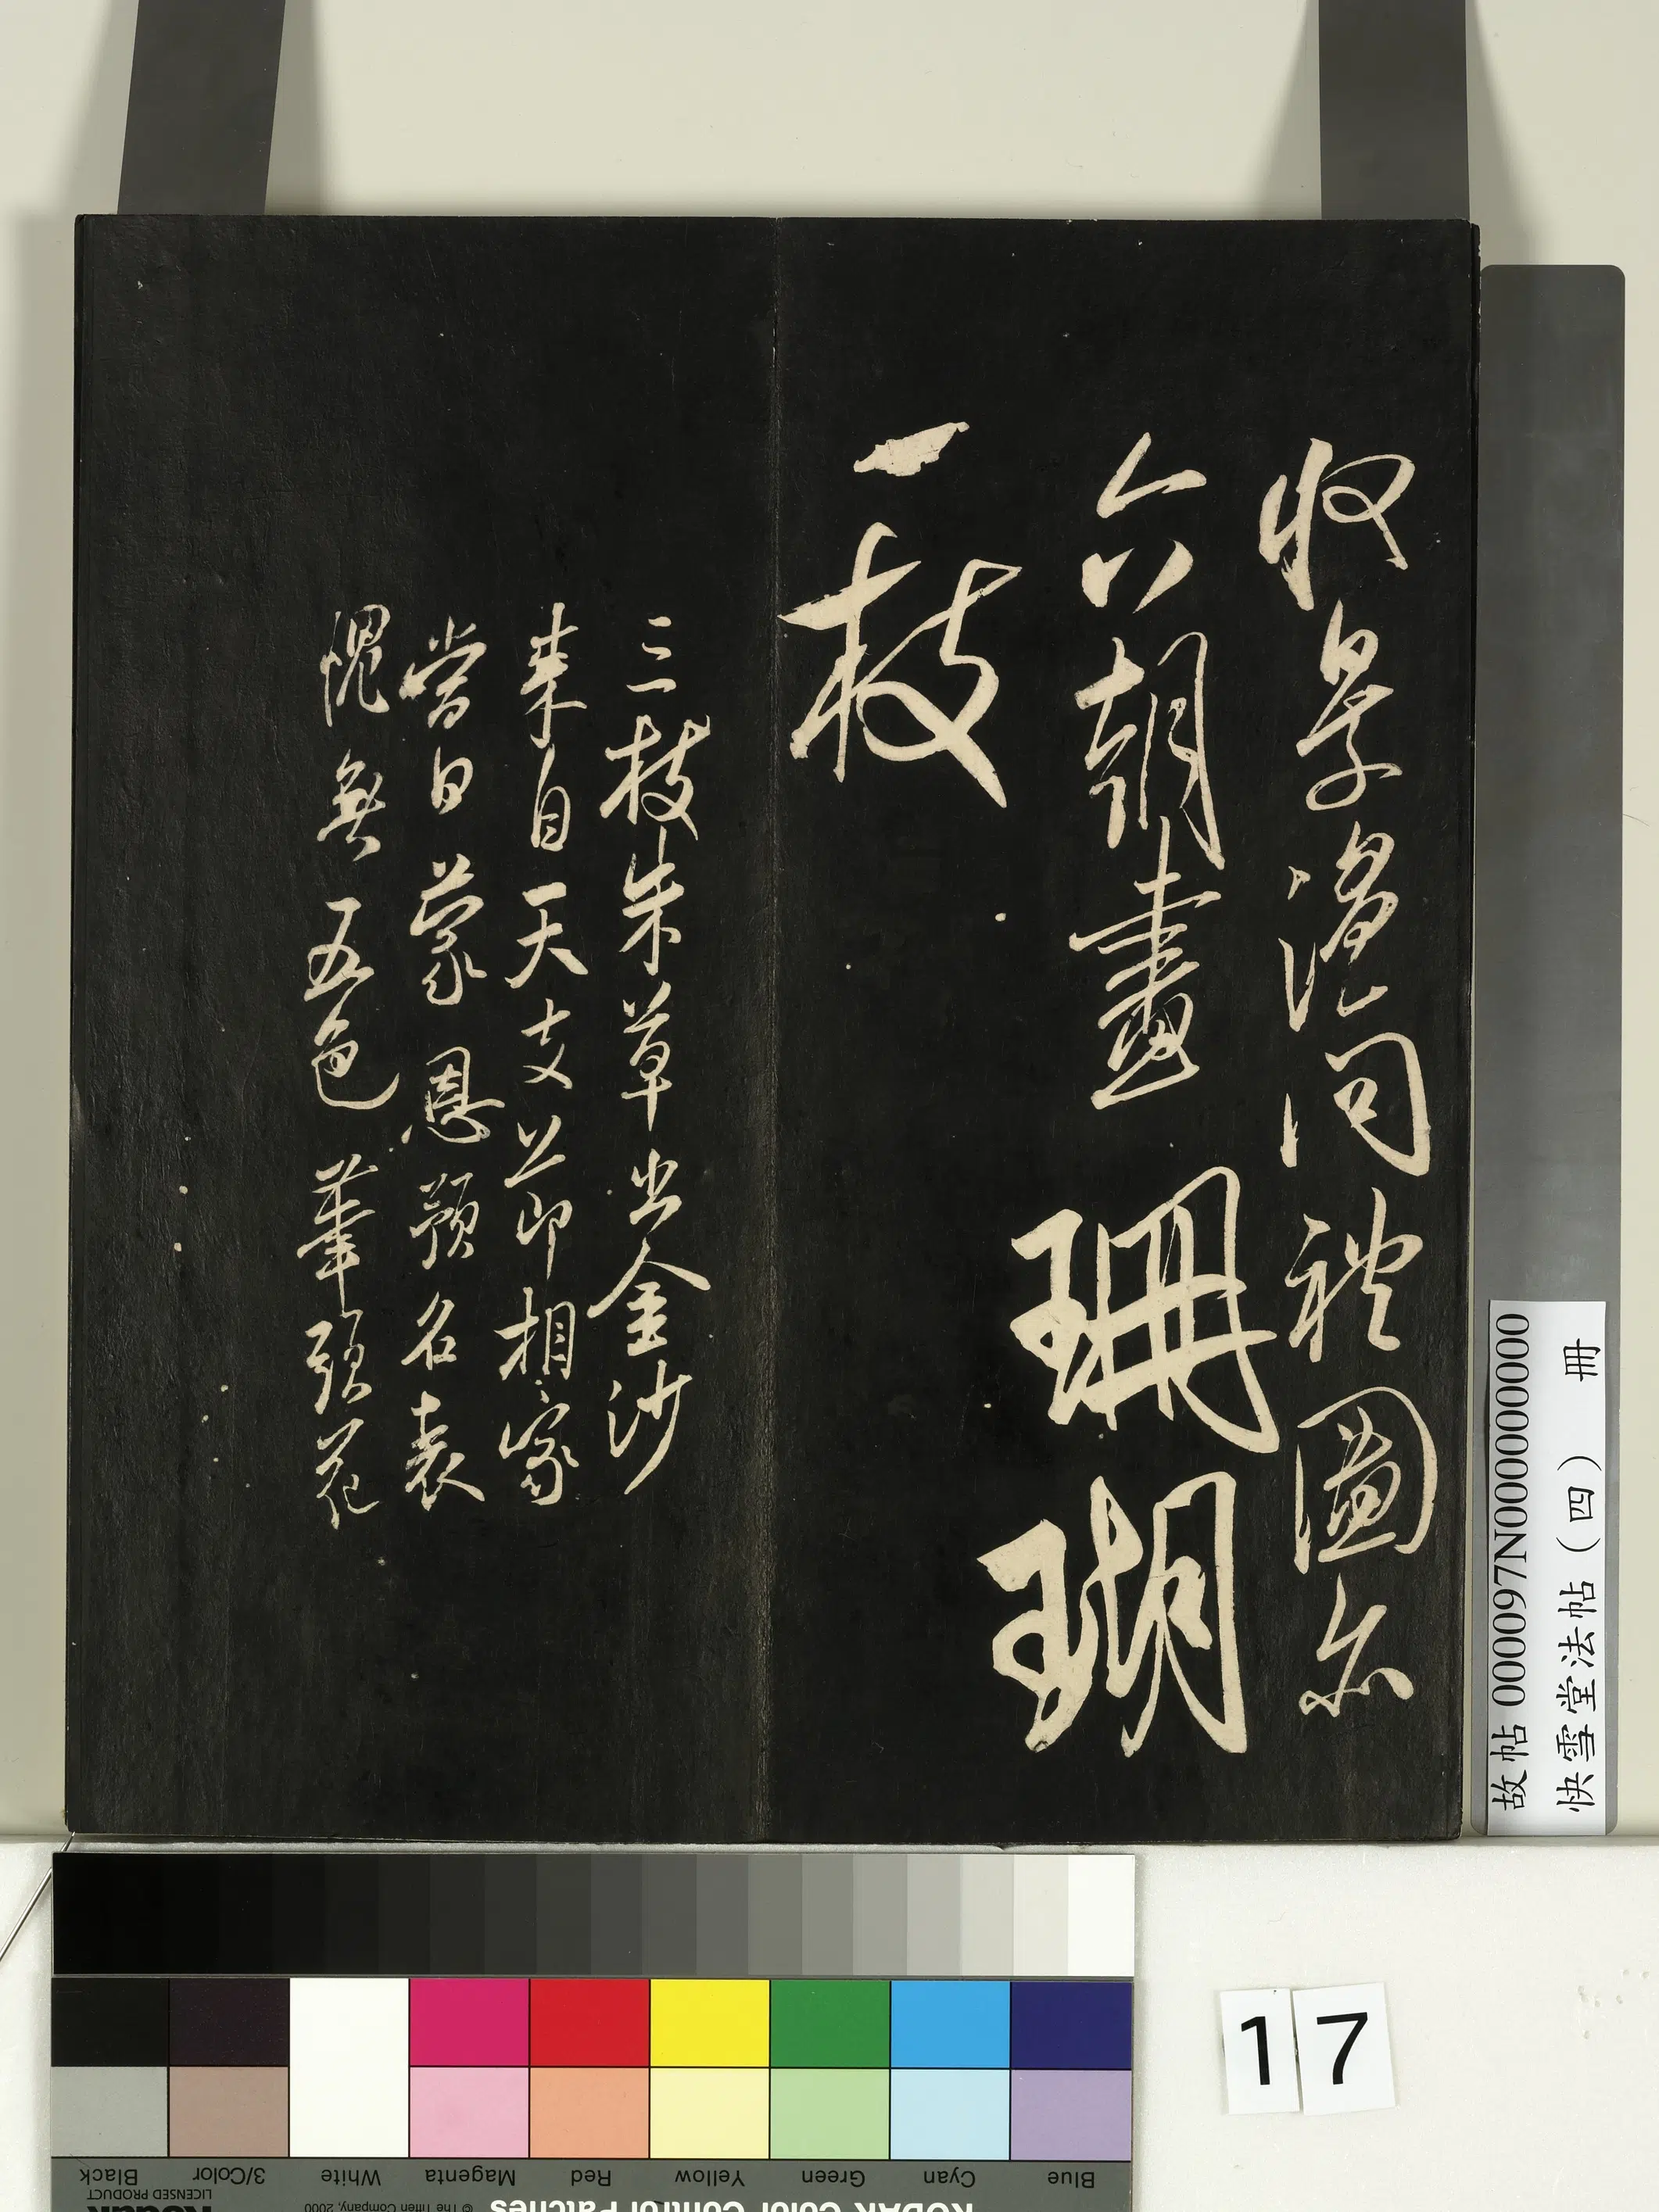 收景温問禮圖亦
六朝畫珊瑚
一枝
三枝朱草出金沙
来自天支節相家
當日蒙恩預名表
愧無五色筆頭花
故帖 000097N000000000
快雪堂法帖（四） 冊
17
Black
3/Color
White
Magenta
Red
Yellow
Green
Cyan
Blue
LICENSED PRODUCT
© The Tiffen Company, 2000
Kodak
KODAK Color Control Patches